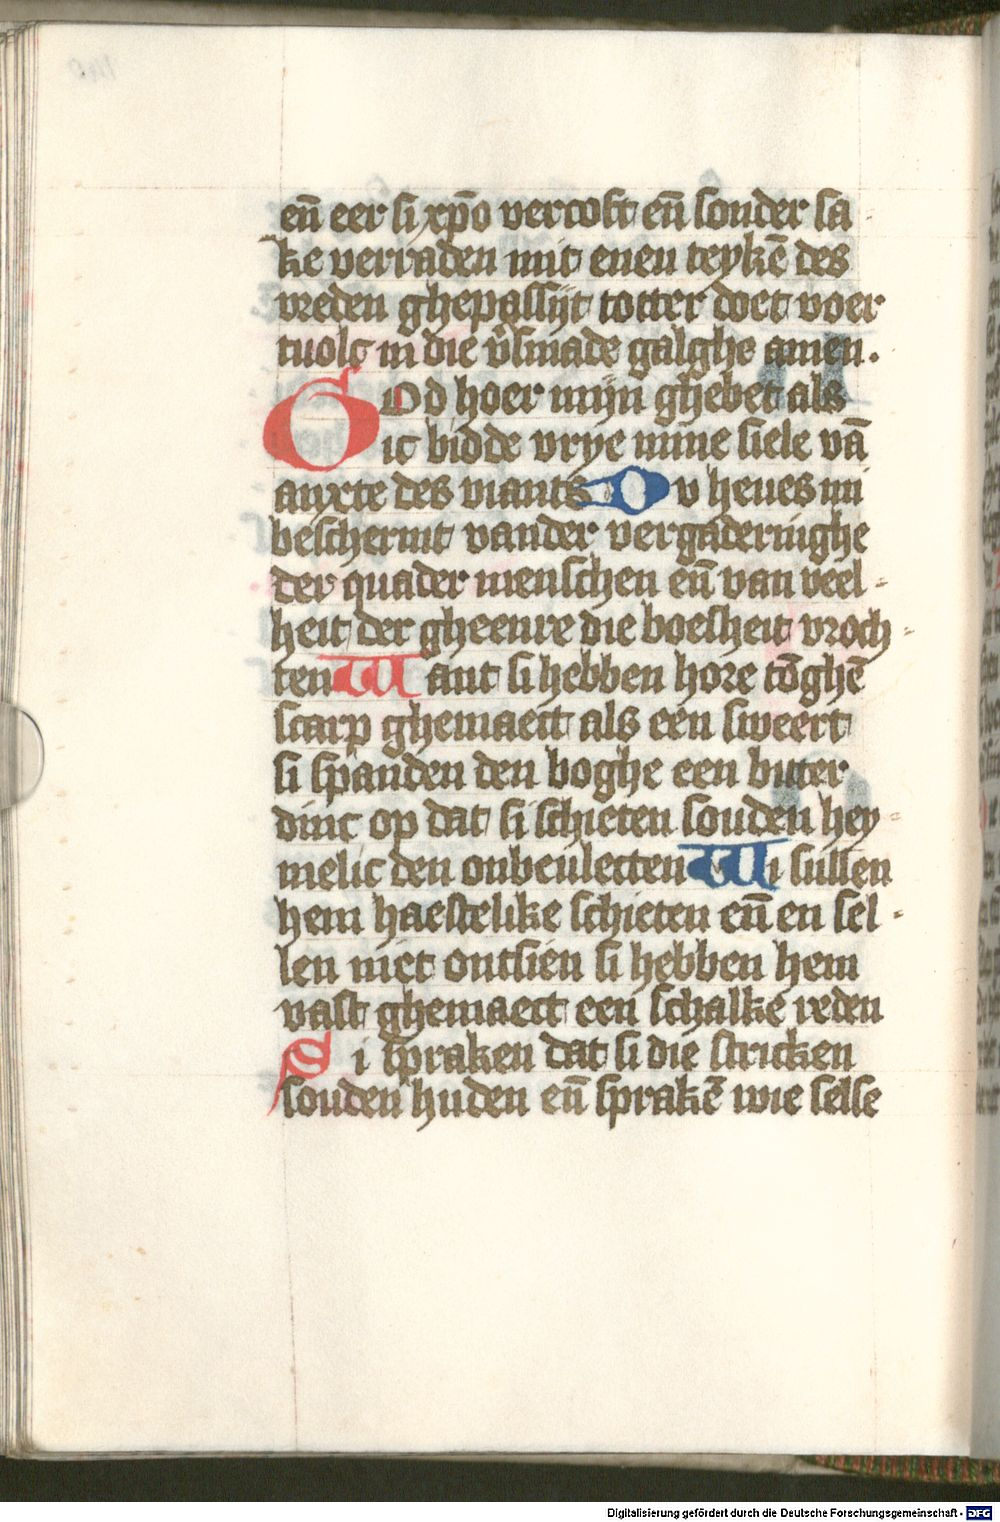 en̄ eer si xp̄o vercoft en̄ sonder sa
ke verraden mit enen teykē des
vreden ghepassijt totter doet voer
tuolc in die v̄smade galghe amen.
God hoer mijn ghebet als
ic bidde vrye mine siele vā
anxte des viants Du heues mi
beschermt vander vergaderinghe
der quader menschen en̄ van veel-
heit der gheenre die boesheit vroch-
ten Want si hebben hore tōghē
scarp ghemaect als een sweert
si spanden den boghe een bitter
dinc op dat si schieten souden hey-
melic den onbeulecten Wi sullen
hem haestelike schieten en̄ en sel-
len niet ontsien si hebben hem
vast ghemaect een schalke reden
Si spraken dat si die stricken
souden huden en̄ sprakē wie selse
Digitalisierung gefördert durch die Deutsche Forschungsgemeinschaft - DFG